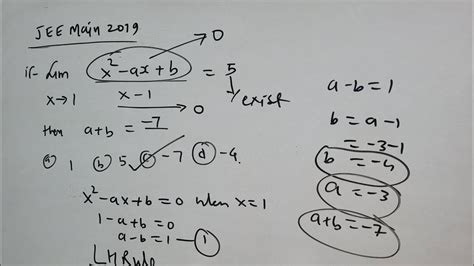 JEE Main 2019
if lim x²-ax+b = 5
x→1 x-1
→ 0
→ 0
→ exist
then a+b = -7
ⓐ 1 ⓑ 5 ⓒ -7 ⓓ -4
x²-ax+b=0 when x=1
1-a+b=0
a-b=1 — ①
LH Rule
a-b=1
b=a-1
=-3-1
b=-4
a=-3
a+b=-7